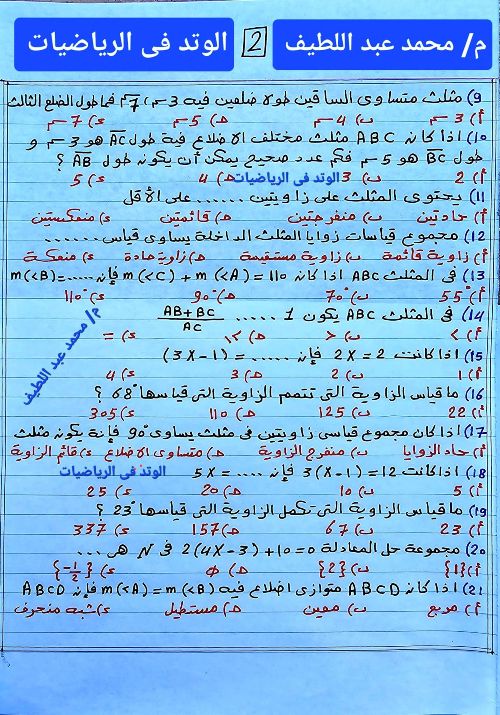 م/ محمد عبد اللطيف 2 الوتد فى الرياضيات
9) مثلث متساوى الساقين طولا ضلعين فيه 3سم، 7سم فما طول الضلع الثالث
أ) 3سم ب) 4سم ج) 5سم د) 7سم
10) اذا كان ABC مثلث مختلف الاضلاع فيه طول AC هو 3سم و
طول BC هو 5سم فكم عدد صحيح يمكن أن يكون طول AB ؟
أ) 2 ب) 3 الوتد فى الرياضيات ج) 4 د) 5
11) يحتوى المثلث على زاويتين ...... على الأقل
أ) حادتين ب) منفرجتين ج) قائمتين د) منعكستين
12) مجموع قياسات زوايا المثلث الداخلة يساوى قياس ......
أ) زاوية قائمة ب) زاوية مستقيمة ج) زاوية حادة د) منعكسة
13) فى المثلث ABC اذا كان m(<A) + m(<C) = 110 فإن ..... =m(<B)
أ) 55° ب) 70° ج) 90° د) 110°
14) فى المثلث ABC يكون 1 ..... AB+BC / AC
أ) > ب) < ج) ≥ د) =
م/ محمد عبد اللطيف
15) اذا كانت 2X = 2 فإن ..... = (3X-1)
أ) 1 ب) 2 ج) 3 د) 4
16) ما قياس الزاوية التى تتمم الزاوية التى قياسها 68° ؟
أ) 22 ب) 125 ج) 110 د) 305
17) اذا كان مجموع قياسى زاويتين فى مثلث يساوى 90° فإنة يكون مثلث
أ) حاد الزوايا ب) منفرج الزاوية ج) متساوى الاضلاع د) قائم الزاوية
18) اذا كانت 3(X-1) = 12 فإن ..... = 5X الوتد فى الرياضيات
أ) 5 ب) 10 ج) 20 د) 25
19) ما قياس الزاوية التى تكمل الزاوية التى قياسها 23° ؟
أ) 23 ب) 67 ج) 157 د) 337
20) مجموعة حل المعادلة 2(4X-3) +10=0 فى N هى ...
أ) {1} ب) {2} ج) Φ د) {-1/2}
21) اذا كان ABCD متوازى اضلاع فيه m(<A) = m(<B) فإن ABCD
أ) مربع ب) معين ج) مستطيل د) شبه منحرف